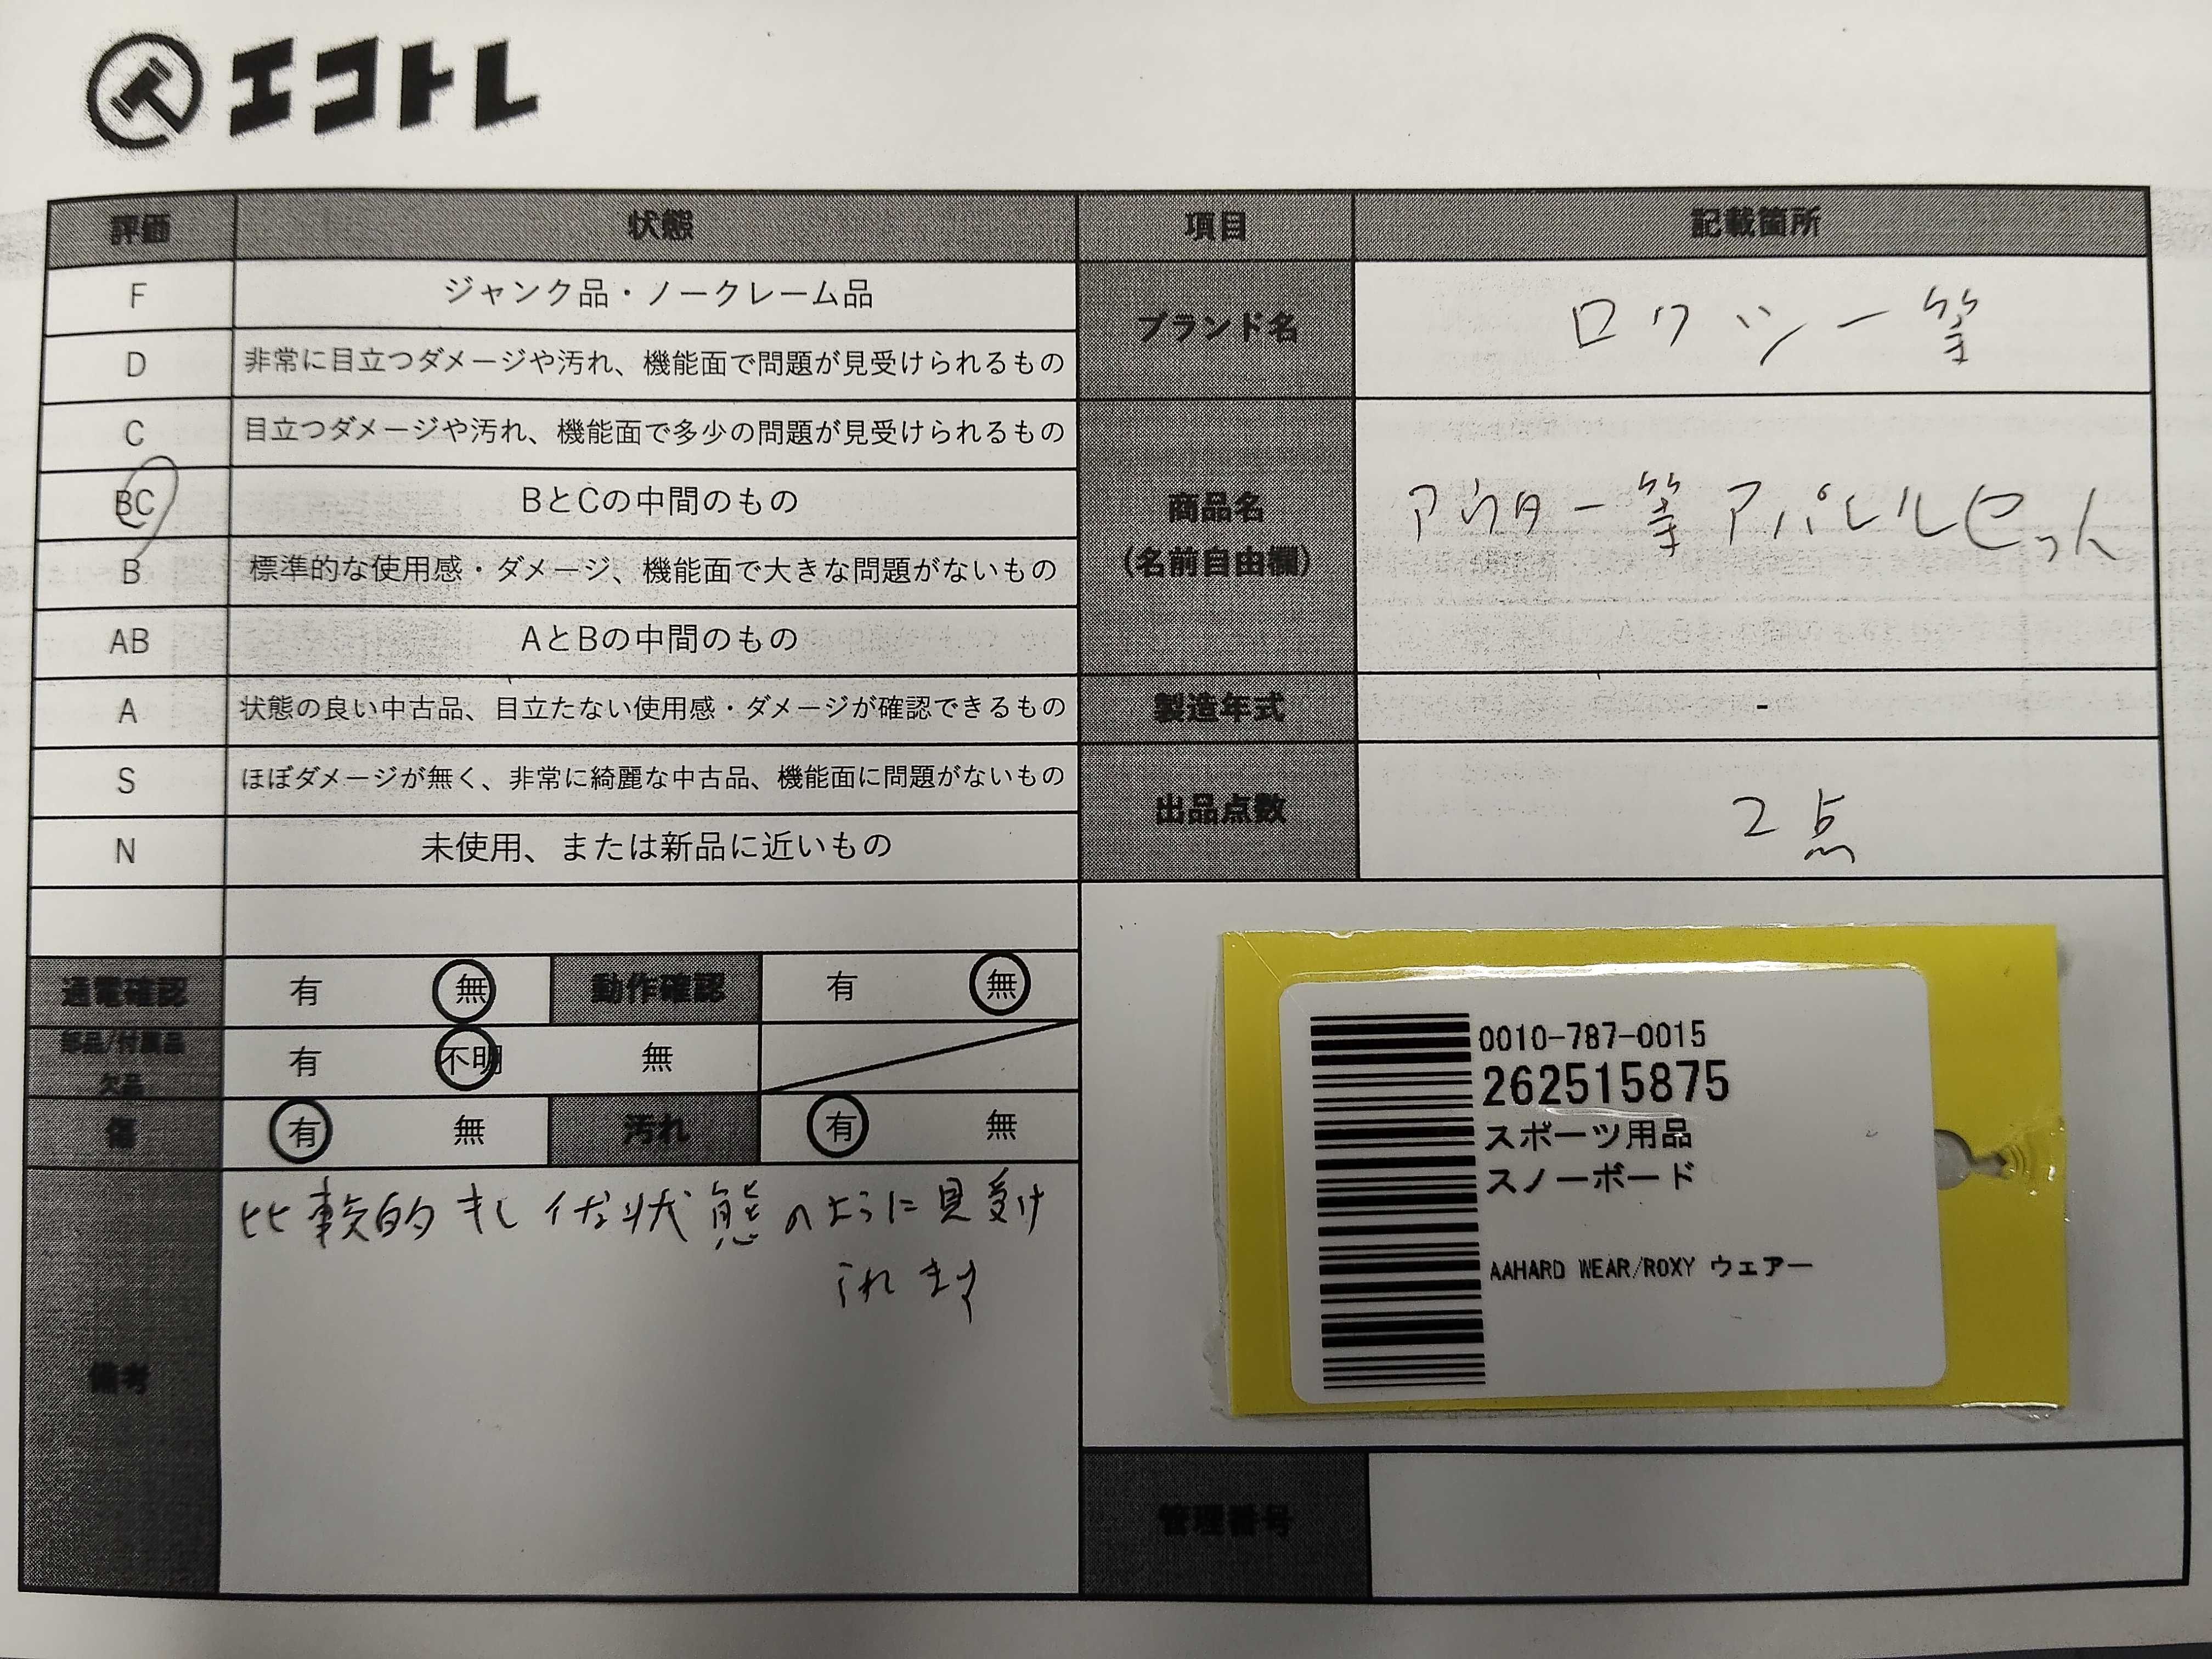 エコトレ
評価 状態 項目 記載箇所
F ジャンク品・ノークレーム品
D 非常に目立つダメージや汚れ、機能面で問題が見受けられるもの
C 目立つダメージや汚れ、機能面で多少の問題が見受けられるもの
BC BとCの中間のもの
B 標準的な使用感・ダメージ、機能面で大きな問題がないもの
AB AとBの中間のもの
A 状態の良い中古品、目立たない使用感・ダメージが確認できるもの
S ほぼダメージが無く、非常に綺麗な中古品、機能面に問題がないもの
N 未使用、または新品に近いもの
ブランド名 ロクシー等
商品名
(名前自由欄)
アウター等アパレルセット
製造年式 -
出品点数 2点
通電確認 有 無 動作確認 有 無
部品/付属品
欠品
有 不明 無
傷 有 無 汚れ 有 無
備考
比較的キレイな状態のように見受け
られます
0010-787-0015
262515875
スポーツ用品
スノーボード
AAHARD WEAR/ROXY ウェアー
管理番号